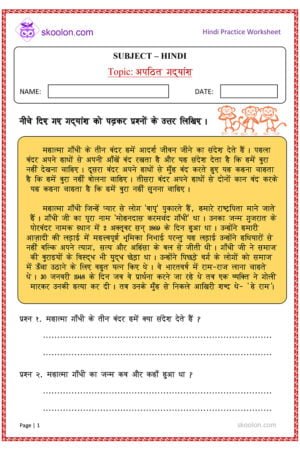 skoolon.com
Hindi Practice Worksheet
SUBJECT – HINDI
Topic: अपठित गद्यांश
NAME:
DATE:
नीचे दिए गए गद्यांश को पढ़कर प्रश्नों के उत्तर लिखिए ।
महात्मा गाँधी के तीन बंदर हमें आदर्श जीवन जीने का संदेश देते हैं । पहला
बंदर अपने हाथों से अपनी आँखें बंद रखता है और यह संदेश देता है कि हमें बुरा
नहीं देखना चाहिए । दूसरा बंदर अपने हाथों से मुँह बंद करते हुए यह कहना चाहता
है कि हमें बुरा नहीं बोलना चाहिए । तीसरा बंदर अपने हाथों से दोनों कान बंद करके
यह कहना चाहता है कि हमें बुरा नहीं सुनना चाहिए ।
महात्मा गाँधी जिन्हें प्यार से लोग 'बापू' पुकारते हैं, हमारे राष्ट्रपिता माने जाते
हैं । गाँधी जी का पूरा नाम 'मोहनदास करमचंद गाँधी' था । उनका जन्म गुजरात के
पोरबंदर नामक स्थान में 2 अक्टूबर सन् 1869 के दिन हुआ था । उन्होंने हमारी
आज़ादी की लड़ाई में महत्त्वपूर्ण भूमिका निभाई परन्तु यह लड़ाई उन्होंने हथियारों से
नहीं बल्कि अपने त्याग, सत्य और अहिंसा के बल से जीती थी । गाँधी जी ने समाज
की बुराइयों के विरुद्ध भी युद्ध छेड़ा था । उन्होंने पिछड़े वर्ग के लोगों को समाज
में ऊँचा उठाने के लिए बहुत यत्न किए थे । वे भारतवर्ष में राम-राज लाना चाहते
थे । 30 जनवरी 1948 के दिन जब वे प्रार्थना करने जा रहे थे तब एक व्यक्ति ने गोली
मारकर उनकी हत्या कर दी । तब उनके मुँह से निकले आखिरी शब्द थे- 'हे राम'।
प्रश्न १. महात्मा गाँधी के तीन बंदर हमें क्या संदेश देते हैं ?
प्रश्न २. महात्मा गाँधी का जन्म कब और कहाँ हुआ था ?
Page | 1
skoolon.com